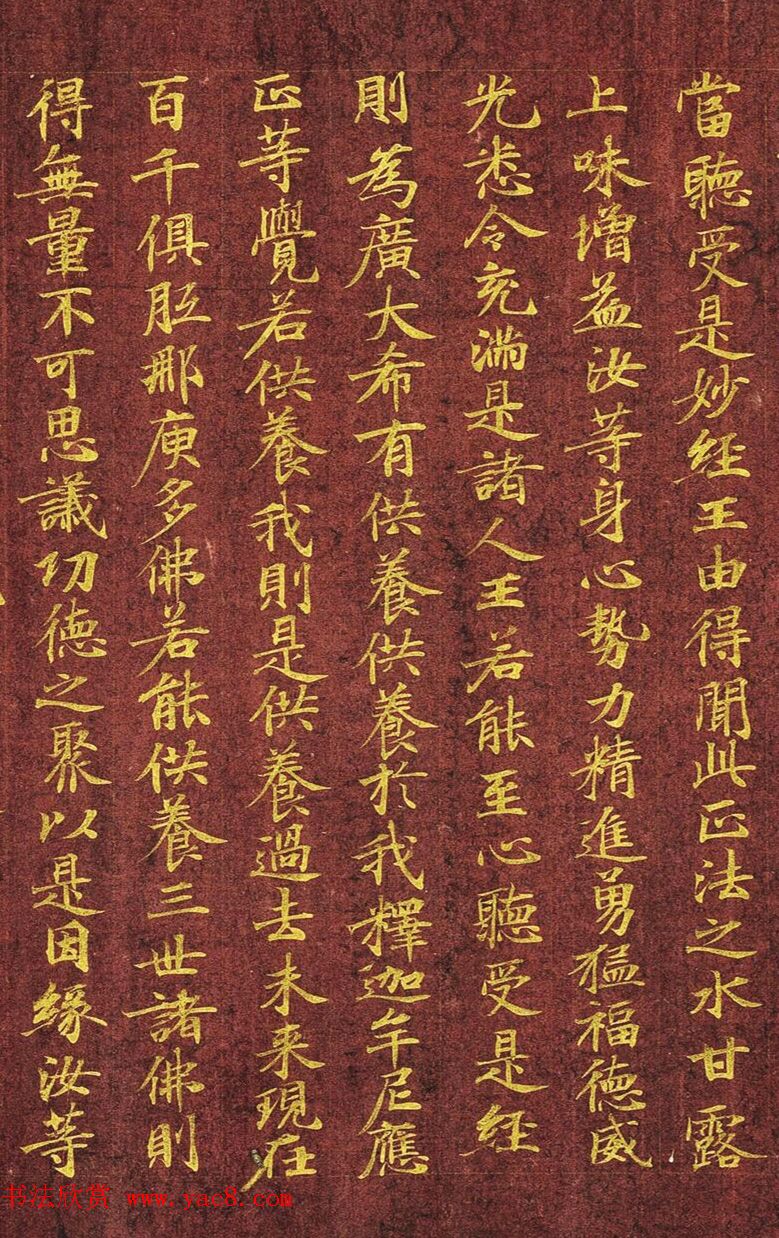 當聽受是妙經王由得聞此正法之水甘露
上味增益汝等身心勢力精進勇猛福德威
光悉令充滿是諸人王若能至心聽受是經
則為廣大希有供養供養於我釋迦牟尼應
正等覺若供養我則是供養過去未來現在
百千俱胝那庾多佛若能供養三世諸佛則
得無量不可思議功德之聚以是因緣汝等
书法欣赏 www.yac8.com